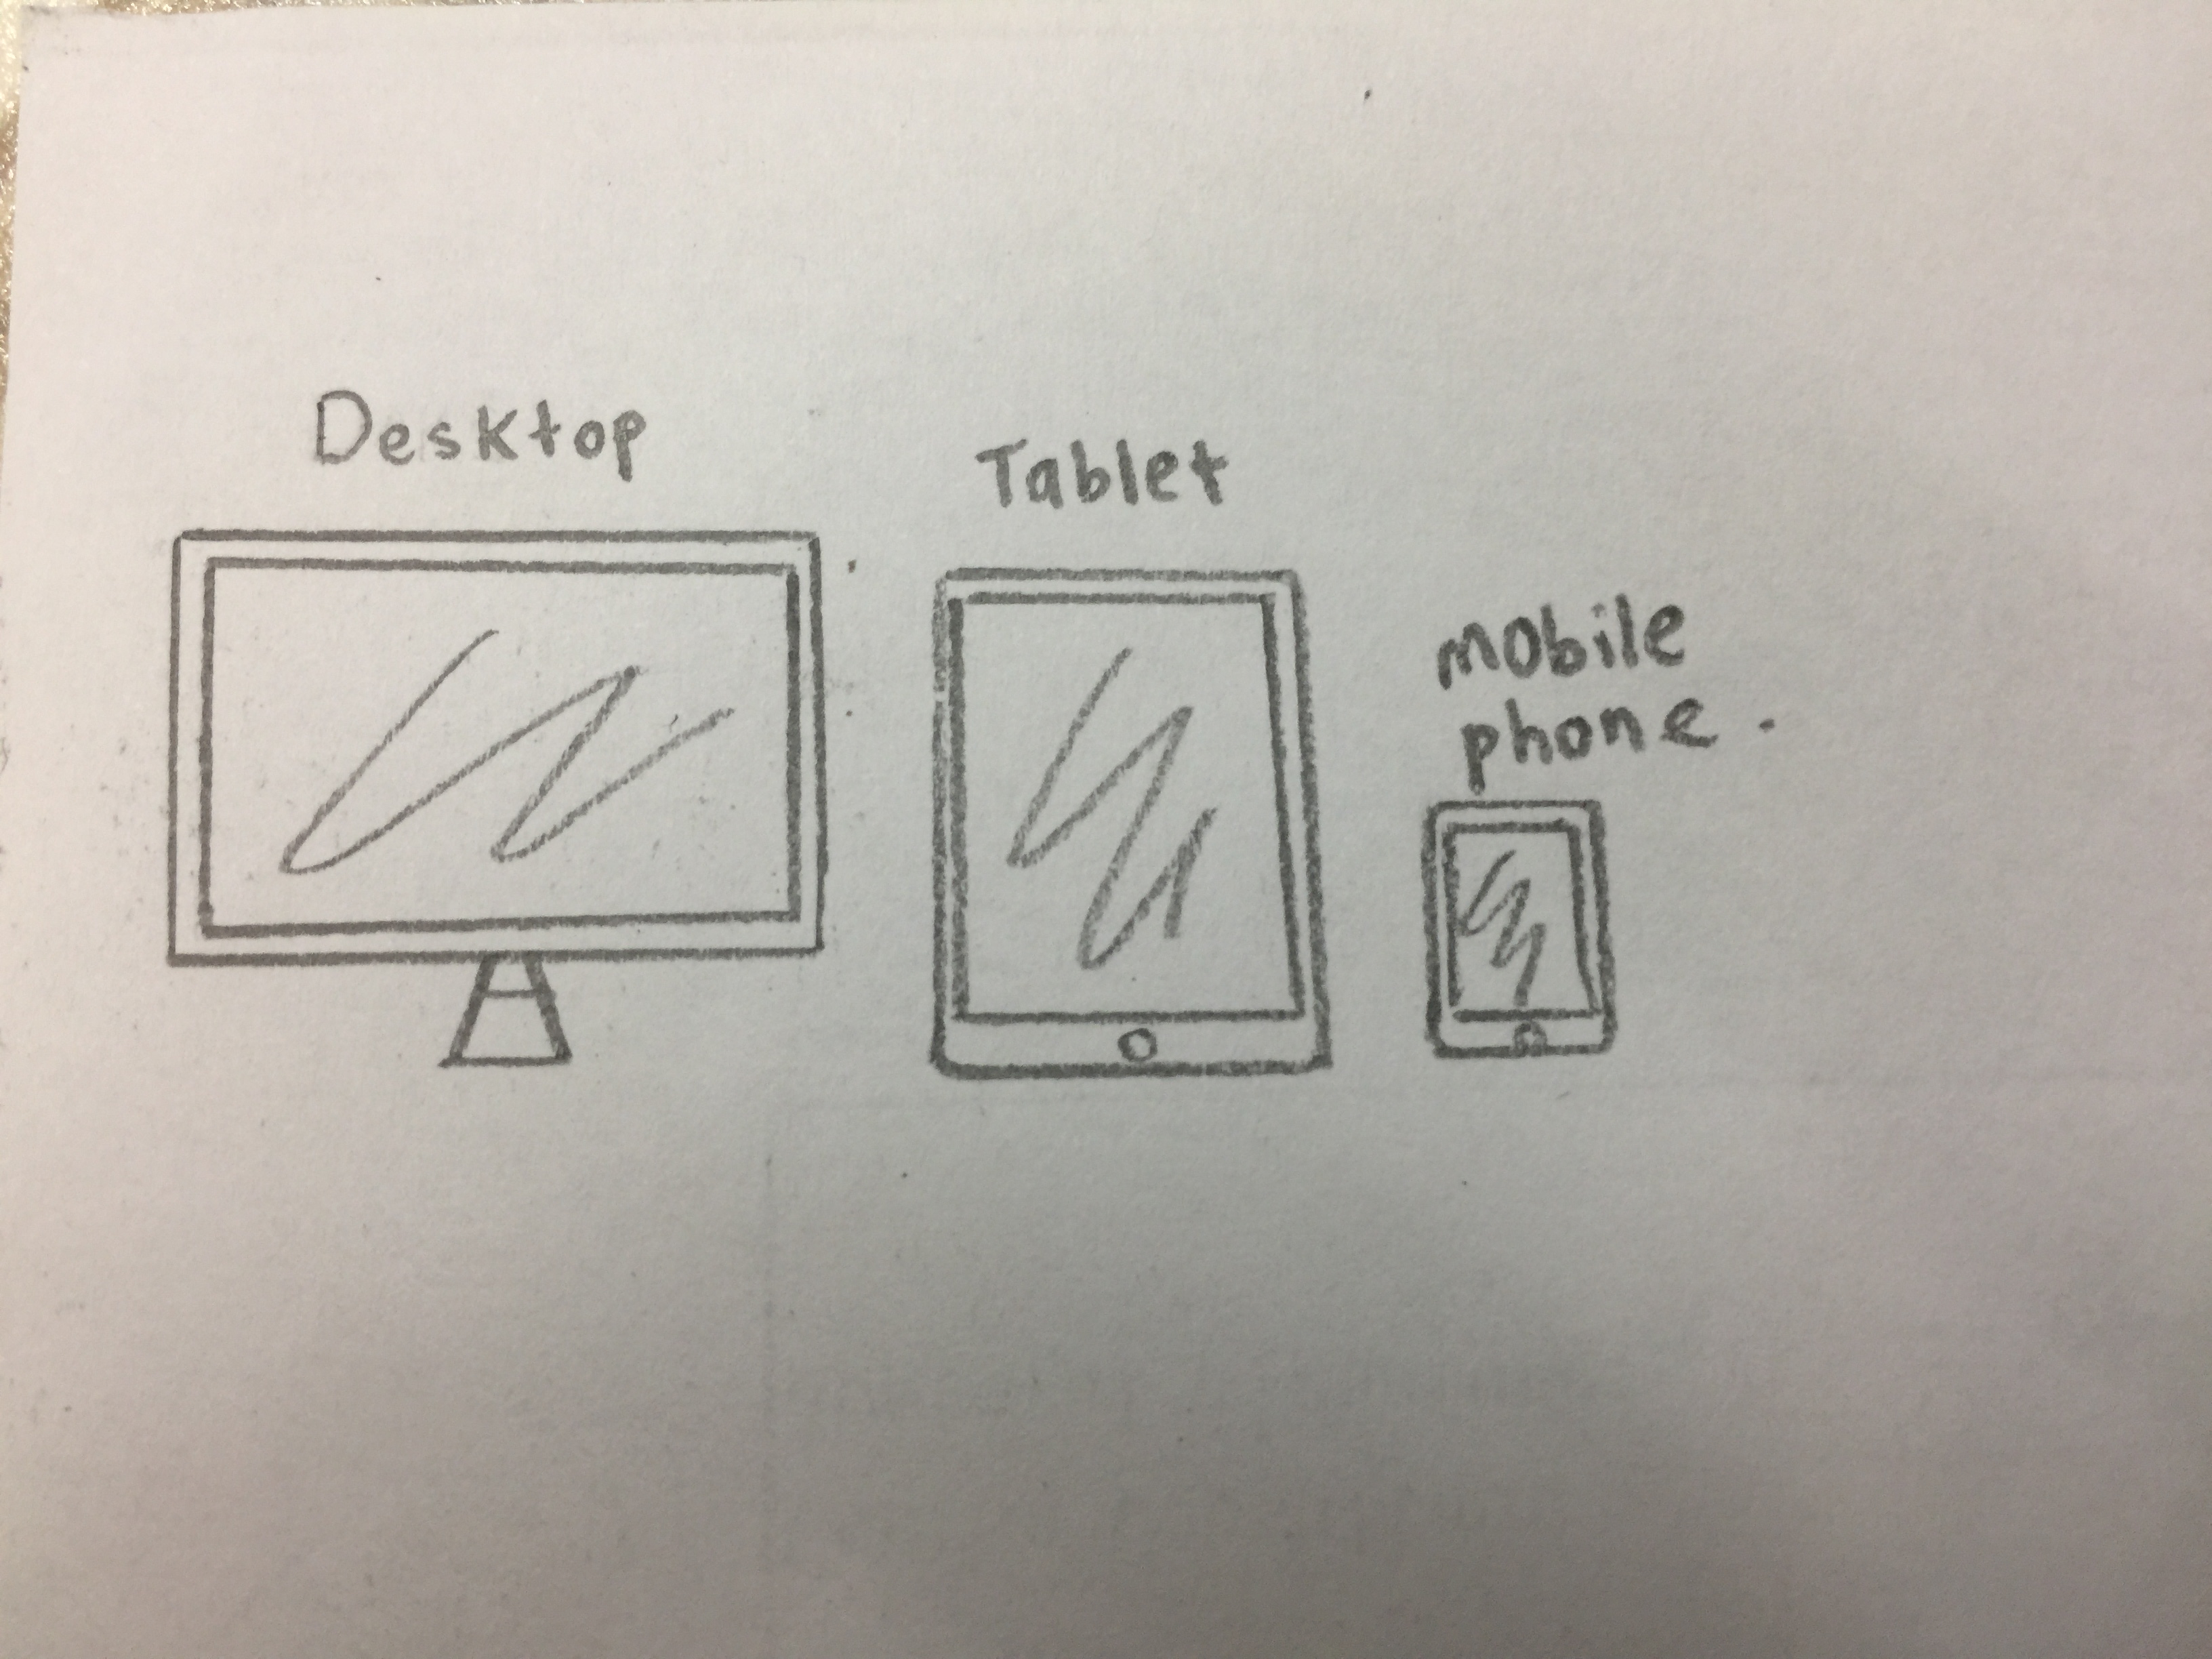 Desktop
Tablet
mobile
phone.